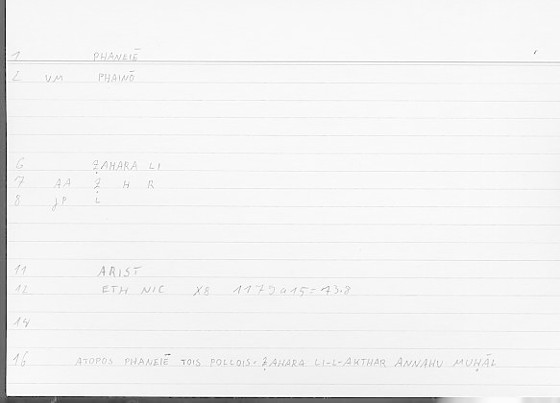 1 PHANEIĒ
2 VM PHAINŌ
6 ẒAHARA LI
7 AA Ẓ H R
8 JP L
11 ARIST
12 ETH NIC X8 1179a15=43.8
14
16 ATOPOS PHANEIĒ TOIS POLLOIS. ẒAHARA LI-L-AKTHAR ANNAHU MUḤĀL